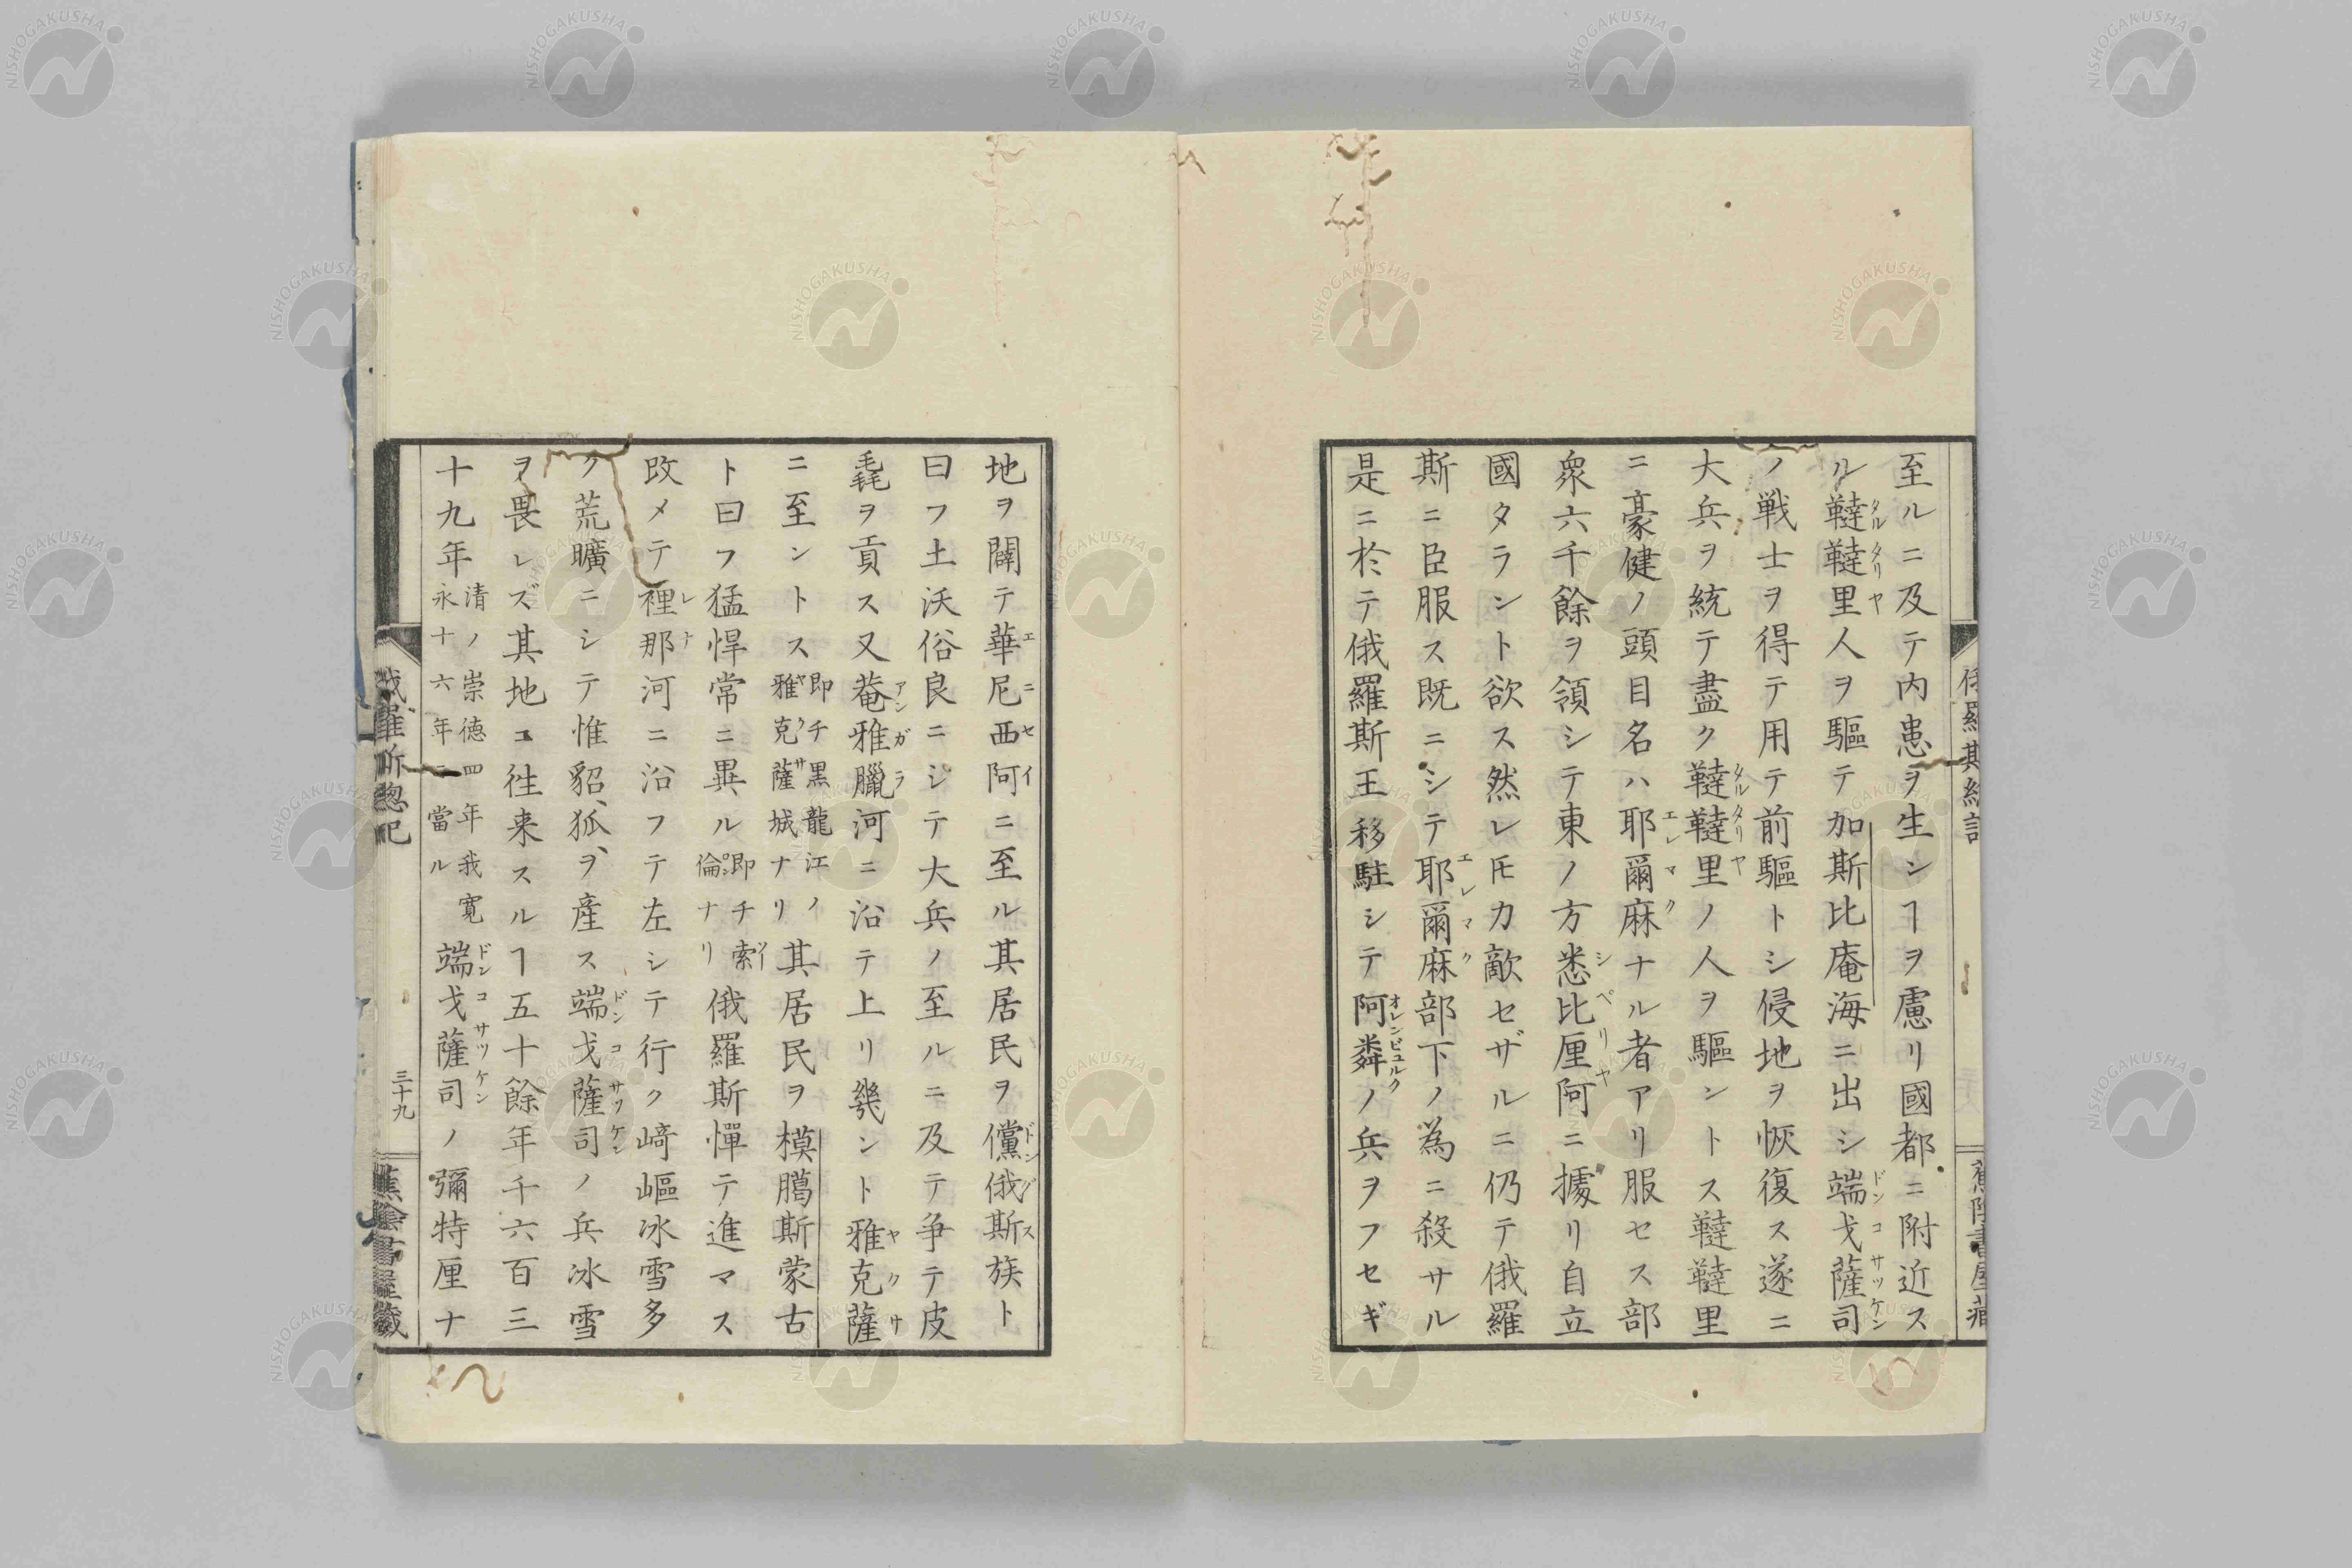 至ルニ及テ内患ヲ生シヿヲ慮リ國都ニ附近ス
ル韃韃里人ヲ驅テ加斯比庵海ニ出シ端戈薩司
ノ戦士ヲ得テ用テ前驅トシ侵地ヲ恢復ス遂ニ
大兵ヲ統テ盡ク韃韃里ノ人ヲ驅ントス韃韃里
ニ豪健ノ頭目名ハ耶爾麻ナル者アリ服セス部
衆六千餘ヲ領シテ東ノ方悉比厘阿ニ據リ自立
國タラント欲ス然レ𪜈力敵セザルニ仍テ俄羅
斯ニ臣服ス既ニシテ耶爾麻部下ノ為ニ殺サル
是ニ於テ俄羅斯王移駐シテ阿粦ノ兵ヲフセギ
地ヲ闢テ華尼西阿ニ至ル其居民ヲ儻俄斯族ト
曰フ土沃俗良ニシテ大兵ノ至ルニ及テ争テ皮
毳ヲ貢ス又菴雅臘河ニ沿テ上リ幾ント雅克薩
ニ至ントス即チ黒龍江ノ雅克薩城ナリ其居民ヲ模臈斯蒙古
ト曰フ猛悍常ニ異ル即チ索倫ナリ俄羅斯憚テ進マス
改メテ裡那河ニ沿フテ左シテ行ク﨑嶇冰雪多
ク荒曠ニシテ惟貂、狐、ヲ産ス端戈薩司ノ兵冰雪
ヲ畏レズ其地ヱ徃来スルヿ五十餘年千六百三
十九年清ノ崇德四年我寛永十六年ニ當ル端戈薩司ノ彌特厘ナ
三十九
NISHOGAKUSHA